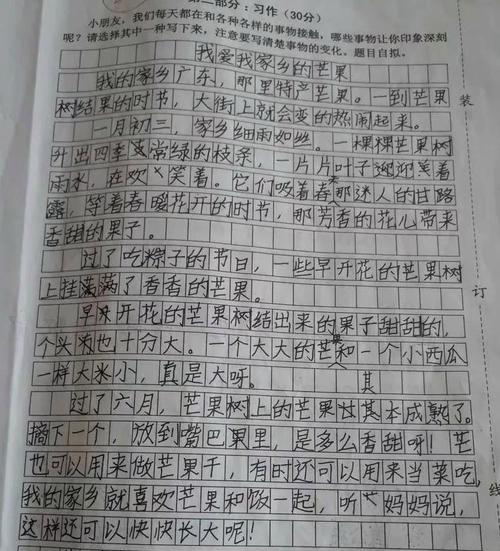 第二部分：习作（30分）
小朋友，我们每天都在和各种各样的事物接触，哪些事物让你印象深刻
呢？请选择其中一种写下来，注意要写清楚事物的变化。题目自拟。
我爱我家乡的芒果
我的家乡广东，那里特产芒果。一到芒果
树结果的时节，大街上就会变的热闹起来。
一月初三，家乡细雨如丝。一棵棵芒果树
升出四季常绿的枝条，一片片叶子迎着
雨水，在欢笑着。它们吸着春那迷人的甘路
露，等着春暖花开的时节，那芳香的花儿带来
香甜的果子。
过了吃粽子的节日，一些早开花的芒果树
上挂满了香香的芒果。
早开花的芒果树结出来的果子甜甜的，
个头也十分大。一个大大的芒果和一个小西瓜
一样大小，真是大呀。
其
过了六月，芒果树上的芒果本成熟了。
摘下一个，放到嘴巴里，是多么香甜呀！芒
也可以用来做芒果干，有时还可以用来当菜吃，
我的家乡就喜欢芒果和饭一起，听妈妈说，
这样还可以快快长大呢！
装
订
线